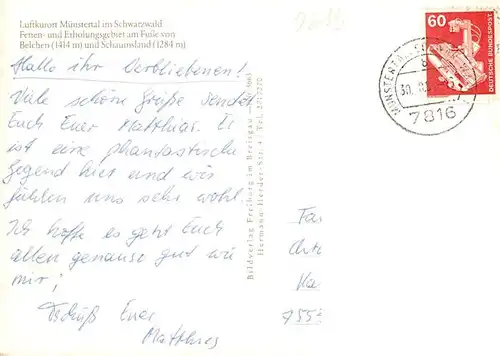 Luftkurort Münstertal im Schwarzwald
Ferien- und Erholungsgebiet am Fuße von
Belchen (1414 m) und Schauinsland (1284 m)
Hallo ihr Verbliebenen!
Viele schöne Grüße sendet
Euch Euer Matthias. Es
ist eine phantastische
Gegend hier und wir
fühlen uns sehr wohl.
Ich hoffe es geht Euch
allen genauso gut wie
mir!
Tschüß Euer
Matthias
Bildverlag Freiburg im Breisgau
Hermann-Herder-Str. 4
60
DEUTSCHE BUNDESPOST
MÜNSTERTAL
30.
7816